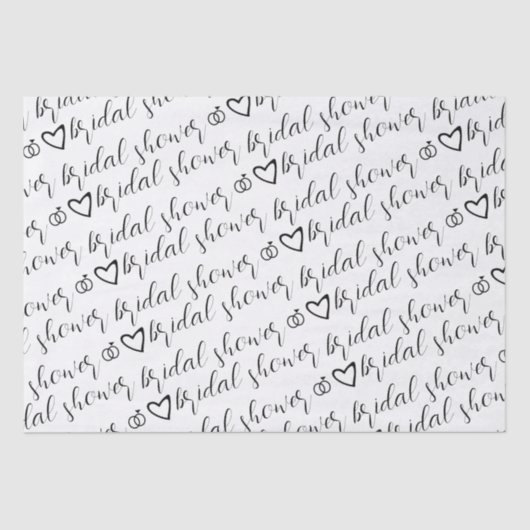 bridal shower
bridal shower bridal shower
bridal shower bridal shower bridal
shower bridal shower bridal shower
shower bridal shower bridal shower bridal
shower bridal shower bridal shower
shower bridal shower bridal shower
shower bridal shower bridal shower
bridal shower bridal shower bridal shower